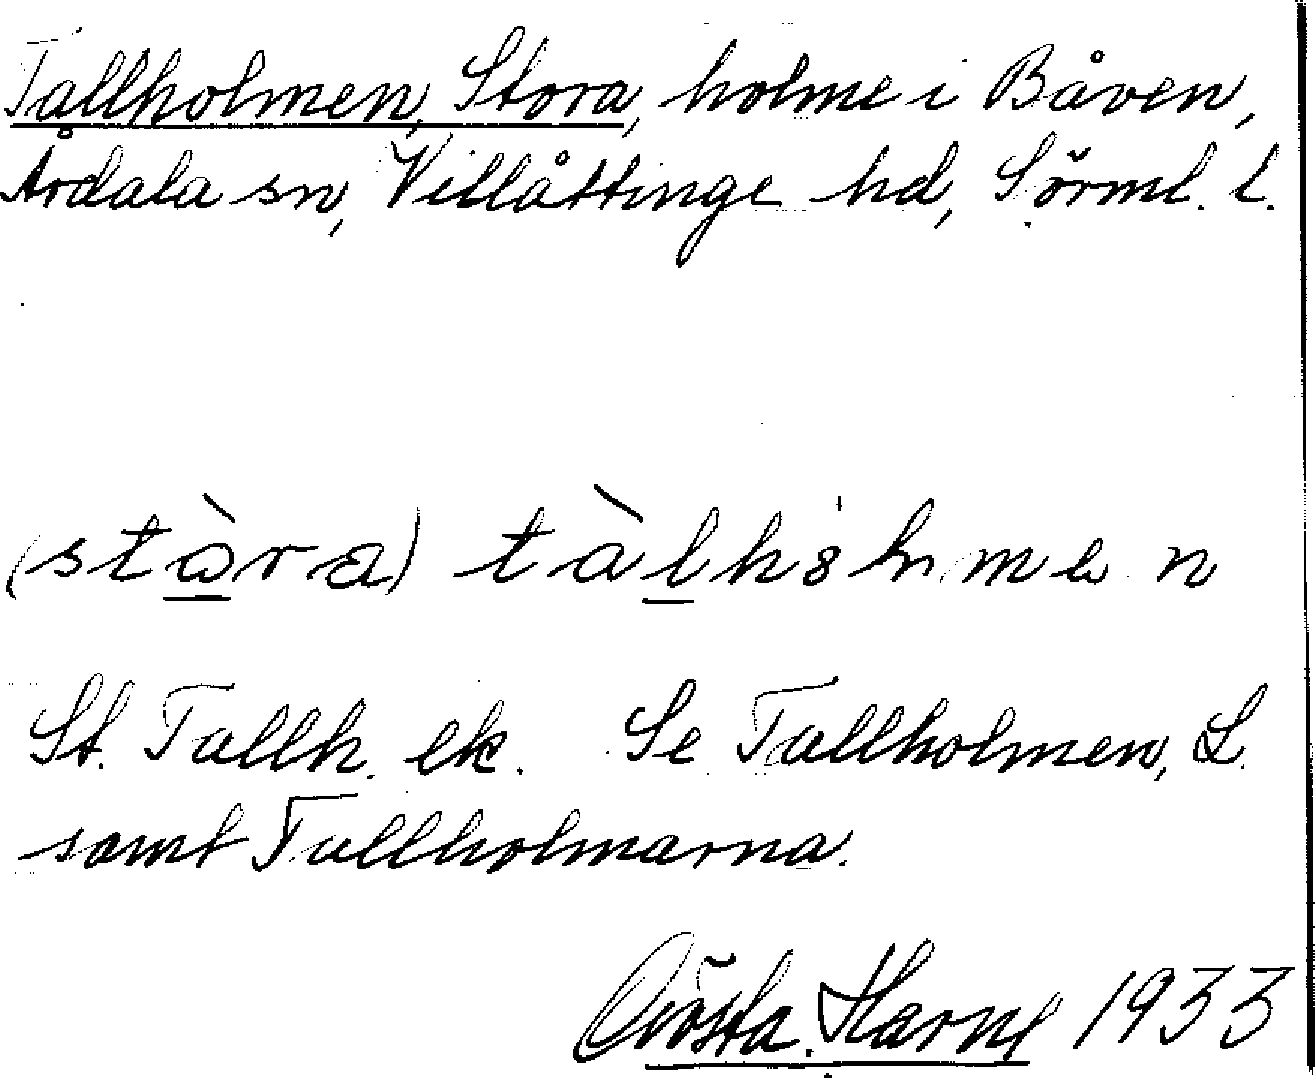 Tallholmen, Stora, holme i Båven,
Årdala sn, Villåttinge hd, Sörml. l.
(stòra) tàlhòlmen
St. Tallh. ek. Se Tallholmen, L.
samt Tallholmarna.
Gösta Harne 1933